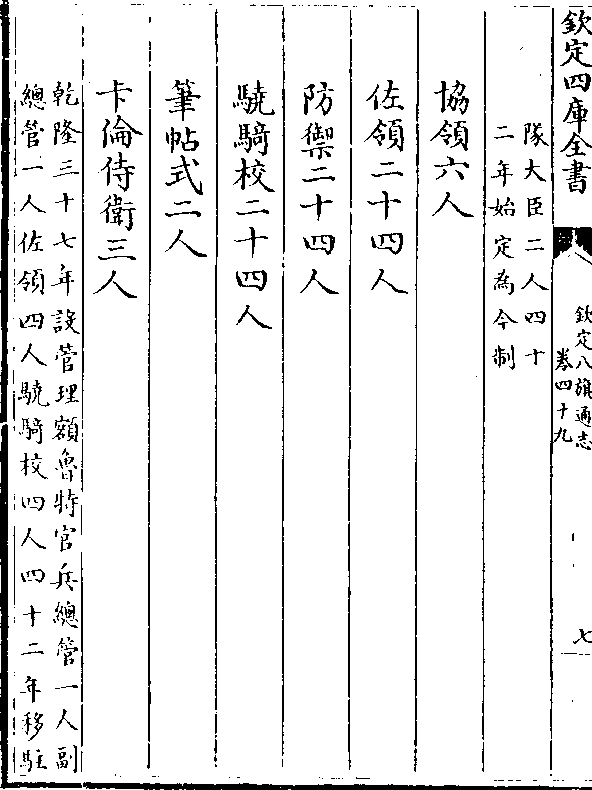 欽定四庫全書
欽定八旗通志
卷四十九
七
隊大臣二人四十
二年始定為今制
協領六人
佐領二十四人
防禦二十四人
驍騎校二十四人
筆帖式二人
卡倫侍衛三人
乾隆三十七年設管理額魯特官兵總管一人副
總管一人佐領四人驍騎校四人四十二年移駐